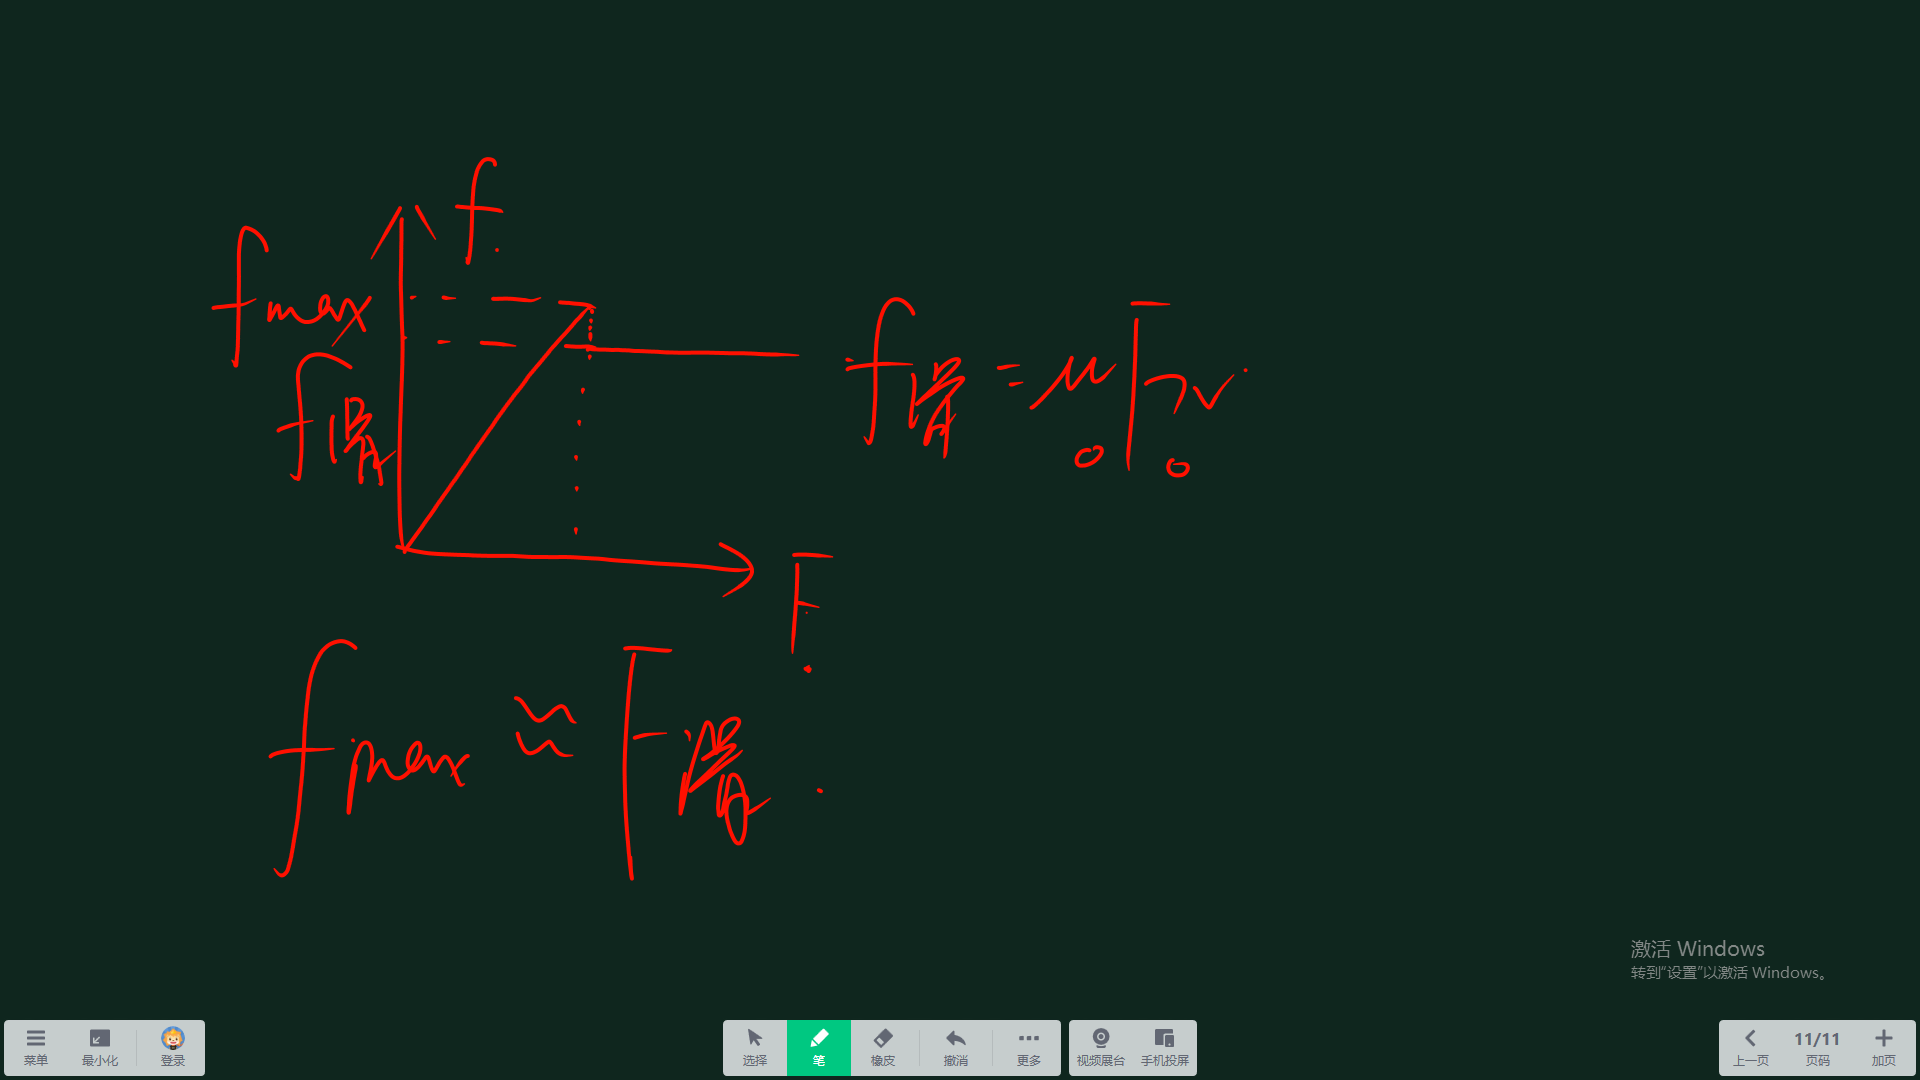 f
fmax
f滑
f滑=μFN
F
fmax≈F滑.
激活 Windows
转到“设置”以激活 Windows。
菜单 最小化 登录 选择 笔 橡皮 撤消 更多 视频展台 手机投屏 上一页 11/11 页码 加页